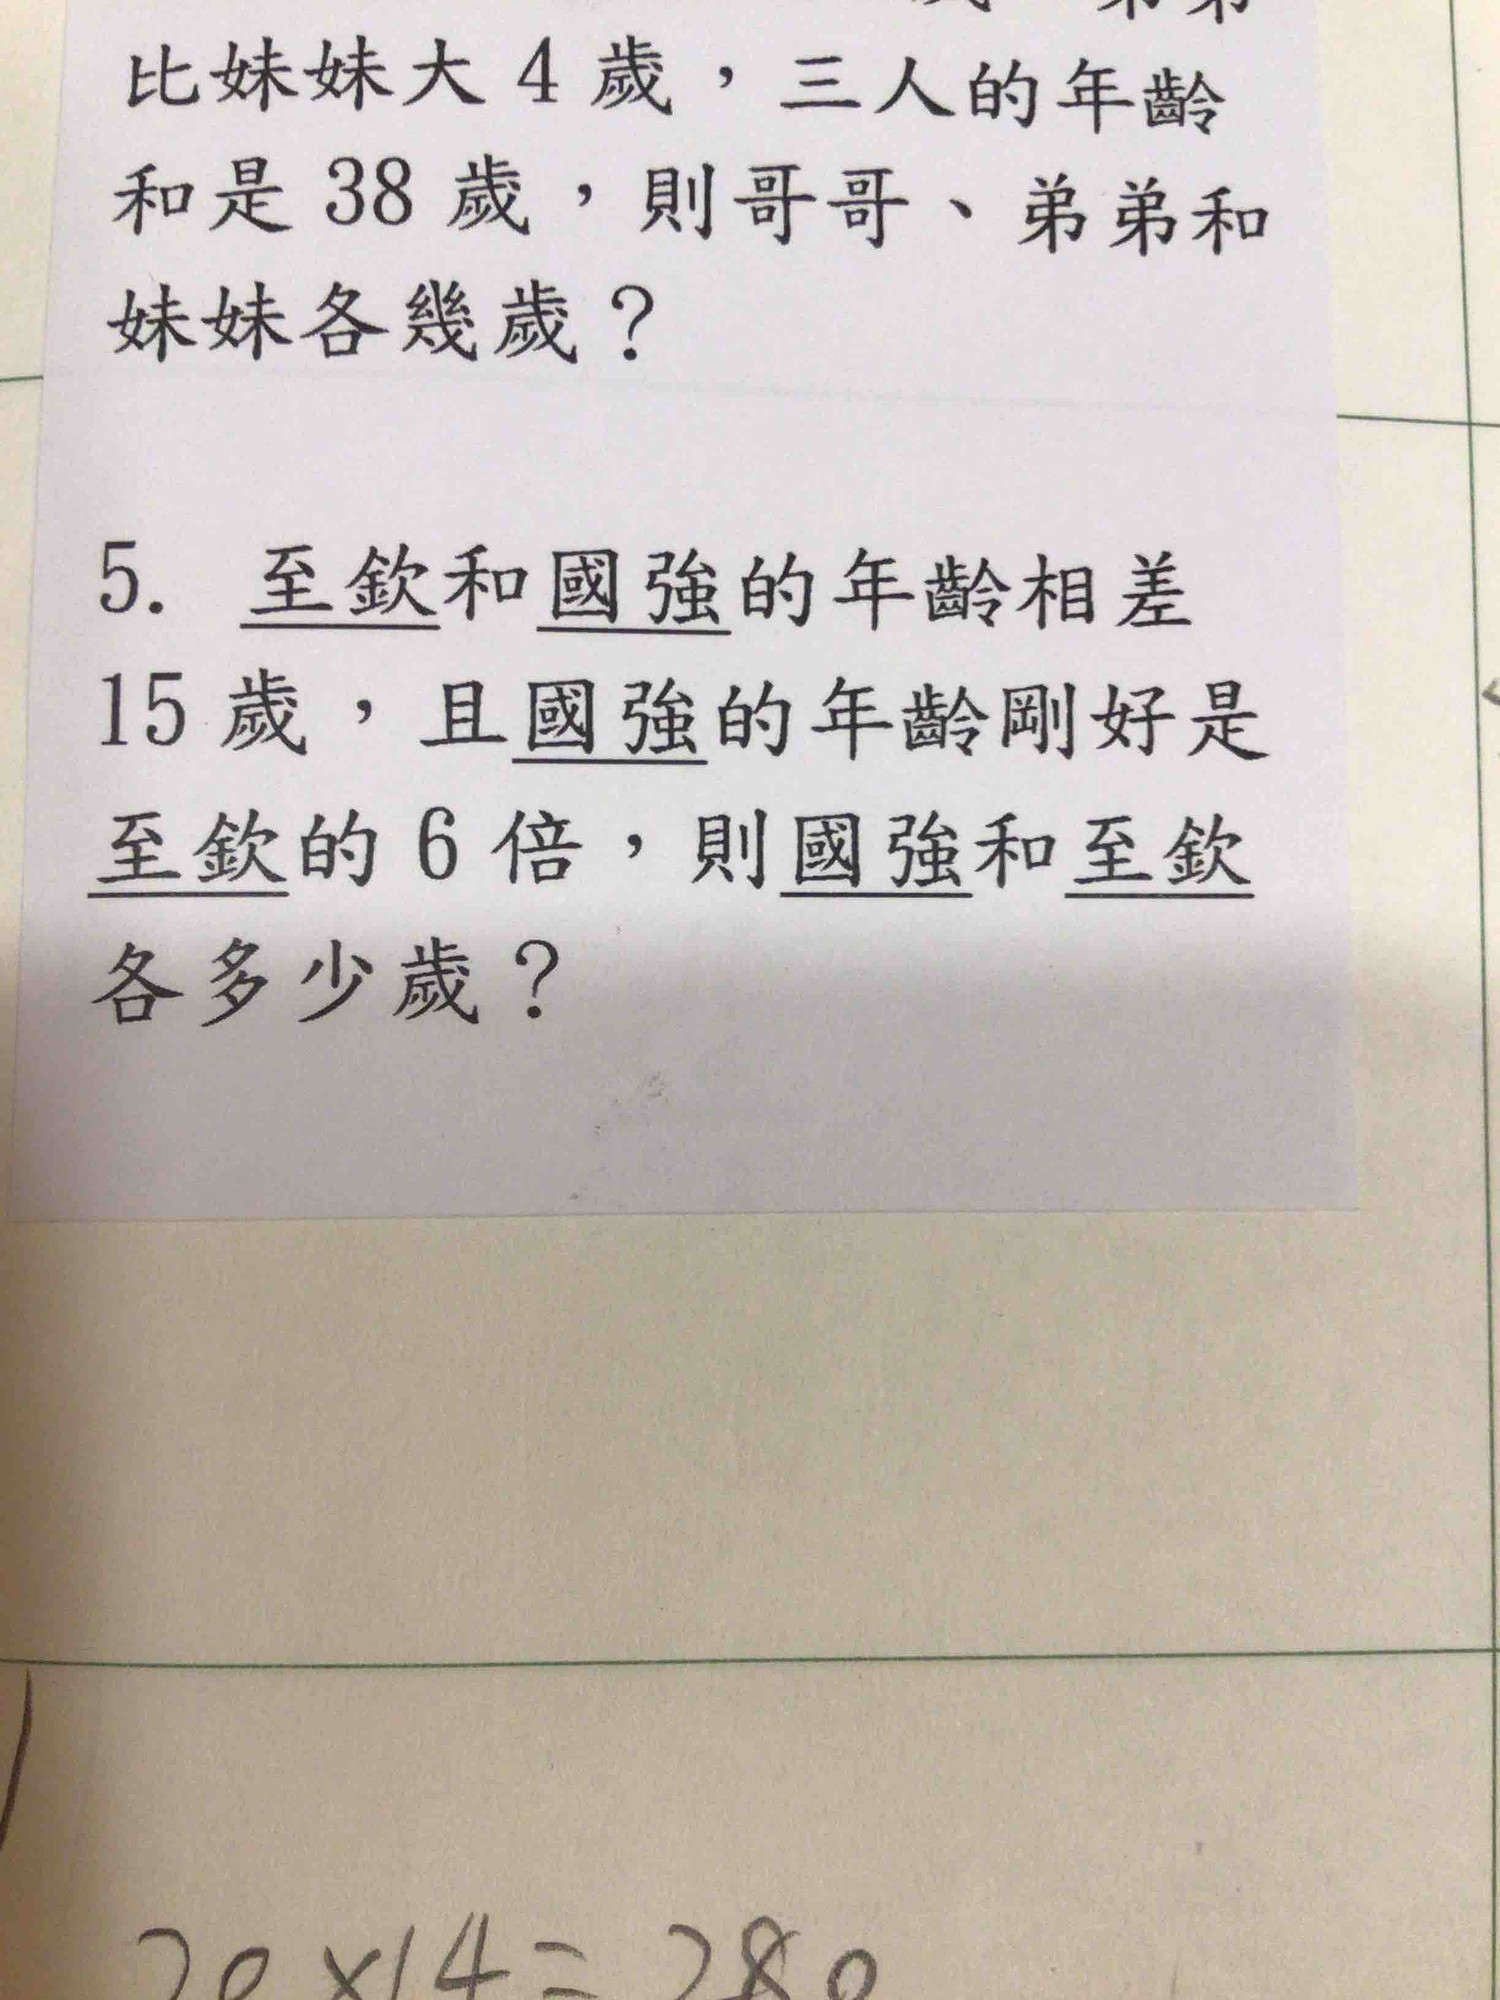 比妹妹大 4 歲，三人的年齡
和是 38 歲，則哥哥、弟弟和
妹妹各幾歲？
5. 至欽和國強的年齡相差
15 歲，且國強的年齡剛好是
至欽的 6 倍，則國強和至欽
各多少歲？
20×14=280